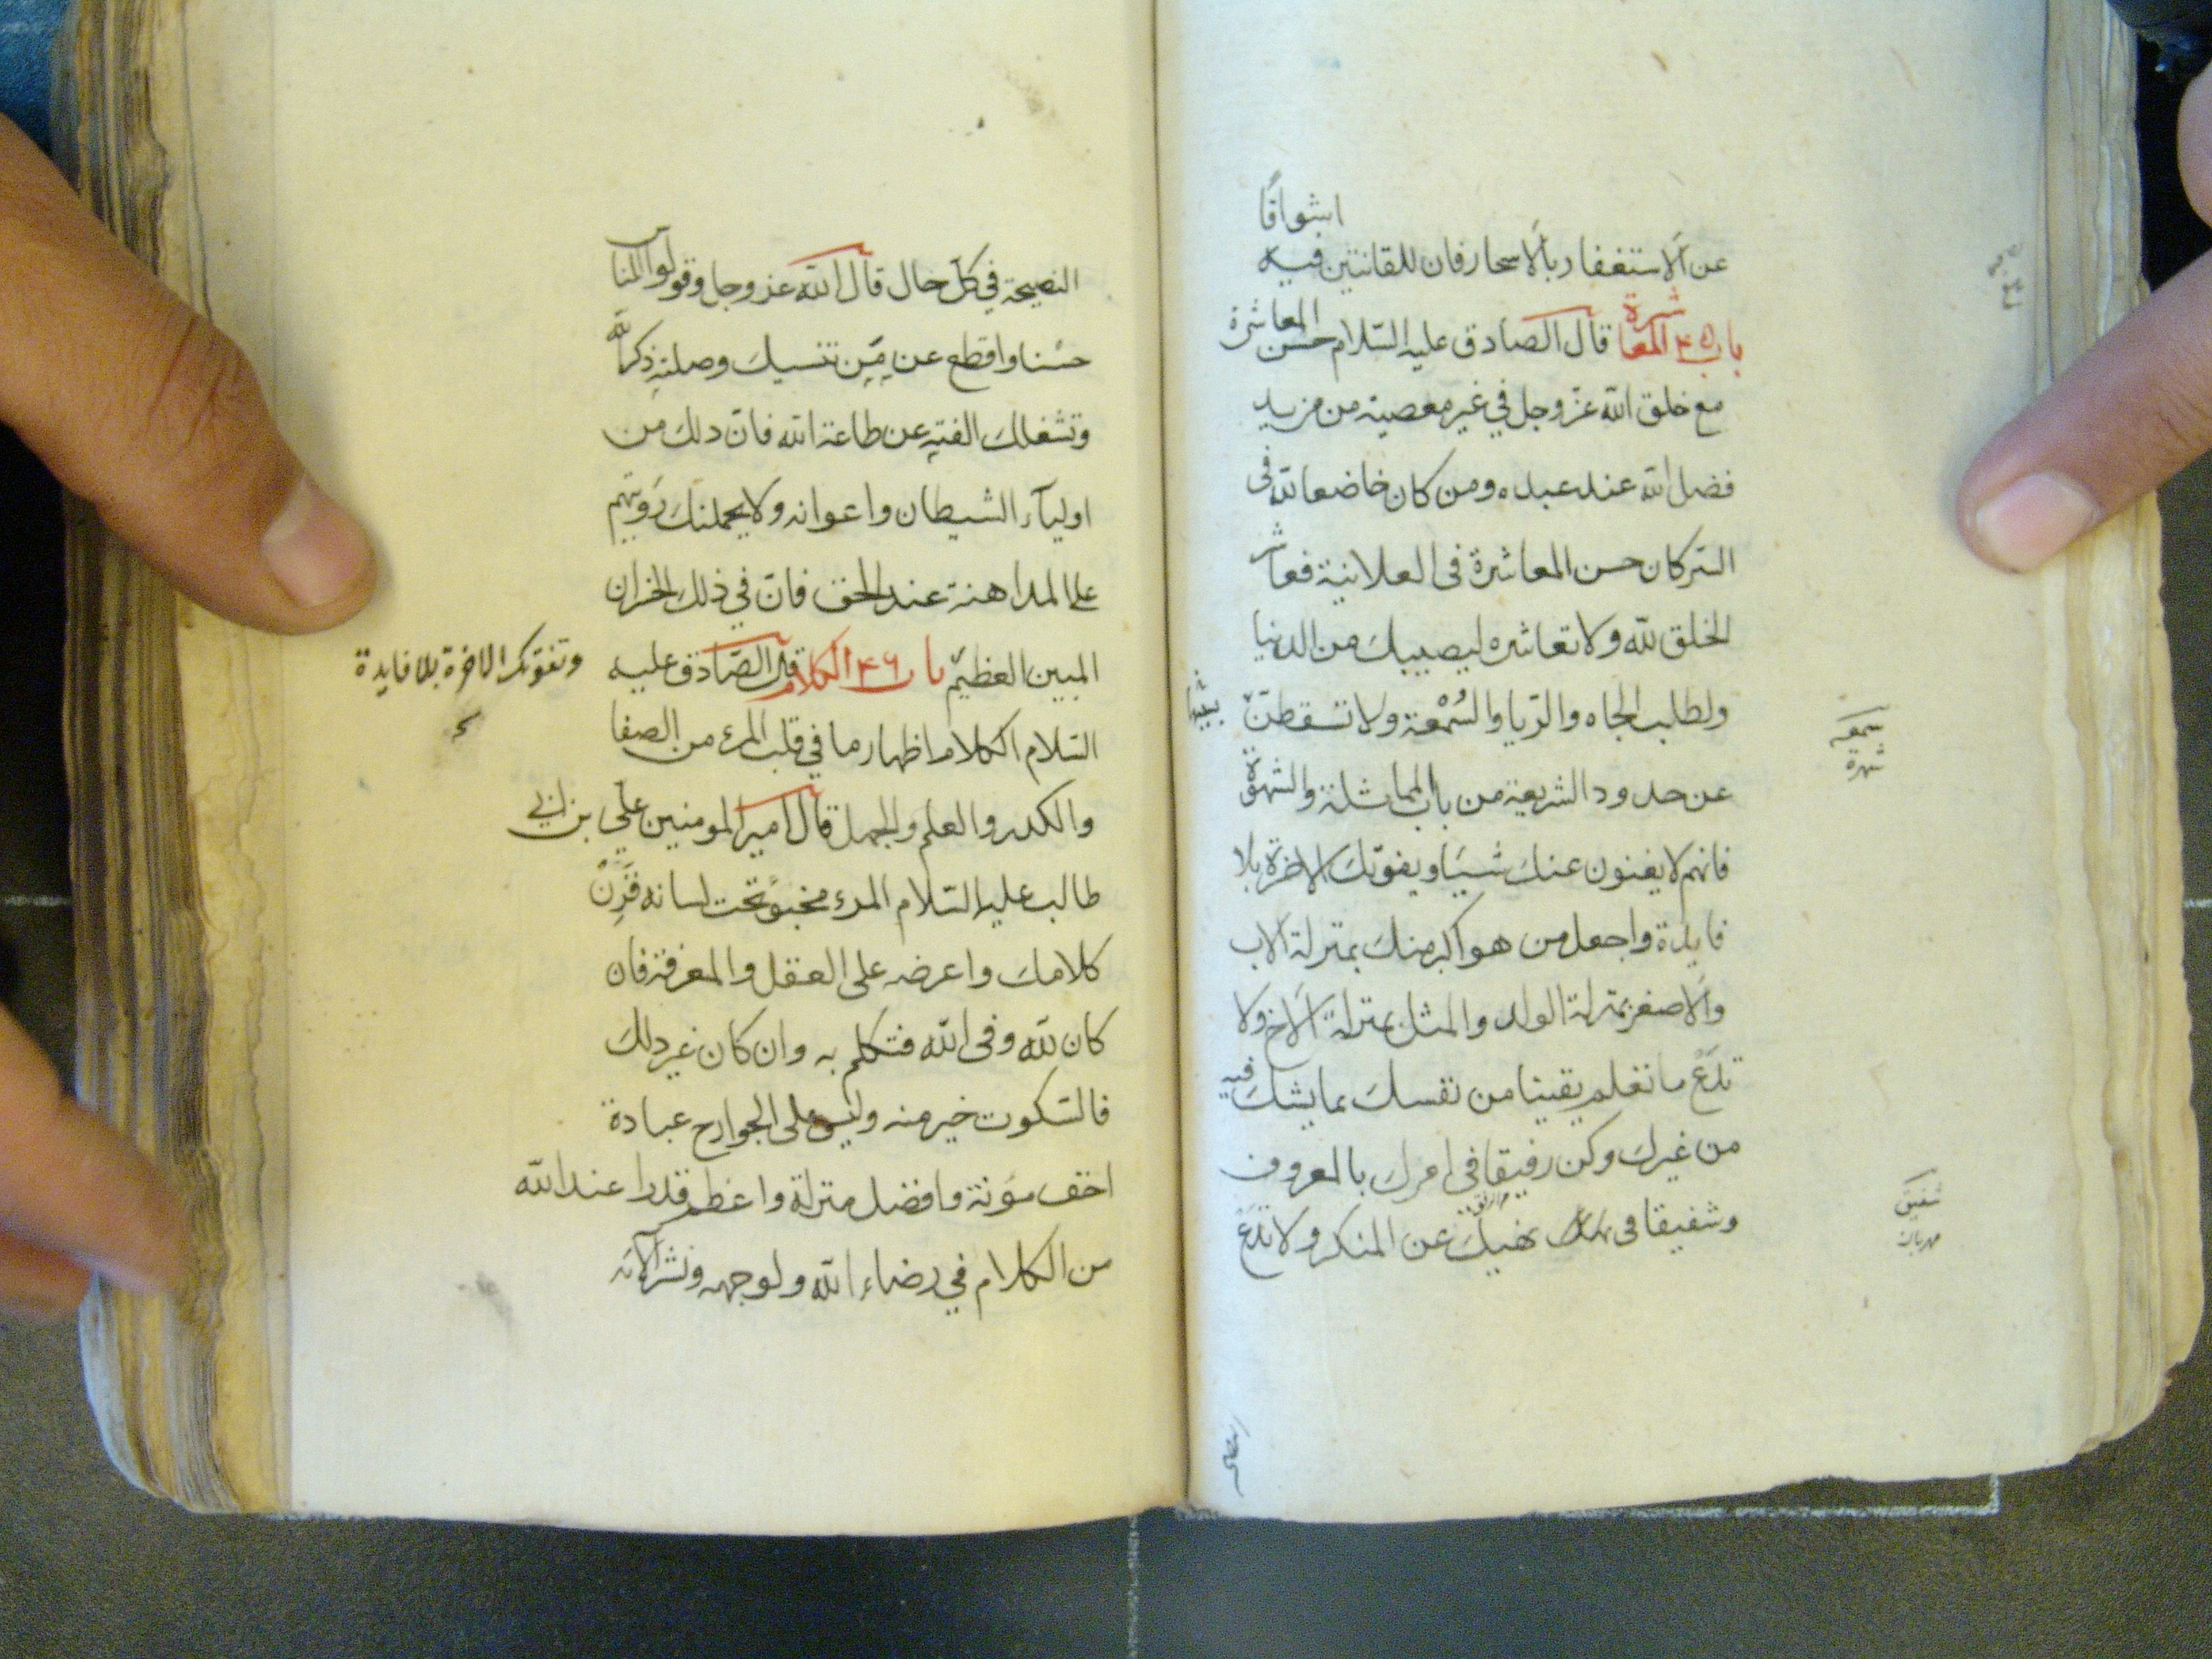 اشواقًا
عن الاستغفار بالاسحار فان للقانتين فيه
باب ۴۵ المعاشرة قال الصادق عليه السّلام حسن المعاشرة
مع خلق الله عزّ وجل في غير معصية من مزيد
فضل الله عند عبده ومن كان خاضعا لله فى
السّر كان حسن المعاشرة فى العلانية فعاشر
الخلق لله ولا تعاشره ليصيبك من الدنيا
ولطلب الجاه والرّيا والسُّمْعة ولا تسقطنّ
عن حدود الشريعة من باب المماثلة والشهرة
فانهم لا يغنون عنك شيئا ويفوتك الاخرة بلا
فايدة واجعل من هو اكبر منك بمنزلة الاب
والاصغر بمنزلة الولد والمثل بمنزلة الاخ ولا
تدَعْ ما تعلم يقينا من نفسك بما يشك فيه
من غيرك وكن رفيقا فى امرك بالمعروف
وشفيقا فى نهيك عن المنكر ولا تدَعْ
سمعه
شهرة
شفيق
مهربان
النصيحة في كلّ حال قال الله عزوجل وقولوا للناس
حسْنا واقطع عن مِمّن تنسيك وصلته ذكر الله
وتشغلك الفته عن طاعة الله فانّ ذلك من
اولياء الشيطان واعوانه ولا يحملنك رؤيتهم
على المداهنة عند الحق فانّ في ذلك الخسران
المبين العظيم باب ۴۶ الكلام قال الصّادق عليه
السّلام الكلام اظهار ما في قلب المرء من الصفا
والكدر والعلم والجهل قال امير المومنين علي بن ابي
طالب عليه السّلام المرء مخبوّ تحت لسانه فزِنْ
كلامك واعرضه على العقل والمعرفة فان
كان لله وفى الله فتكلم به وان كان غير ذلك
فالسّكوت خير منه وليس على الجوارح عبادة
اخف مؤنة وافضل منزلة واعظم قدرا عند الله
من الكلام في رضاء الله ولوجهه ونشر آلائه
وتفوتك الاخرة بلا فايدة